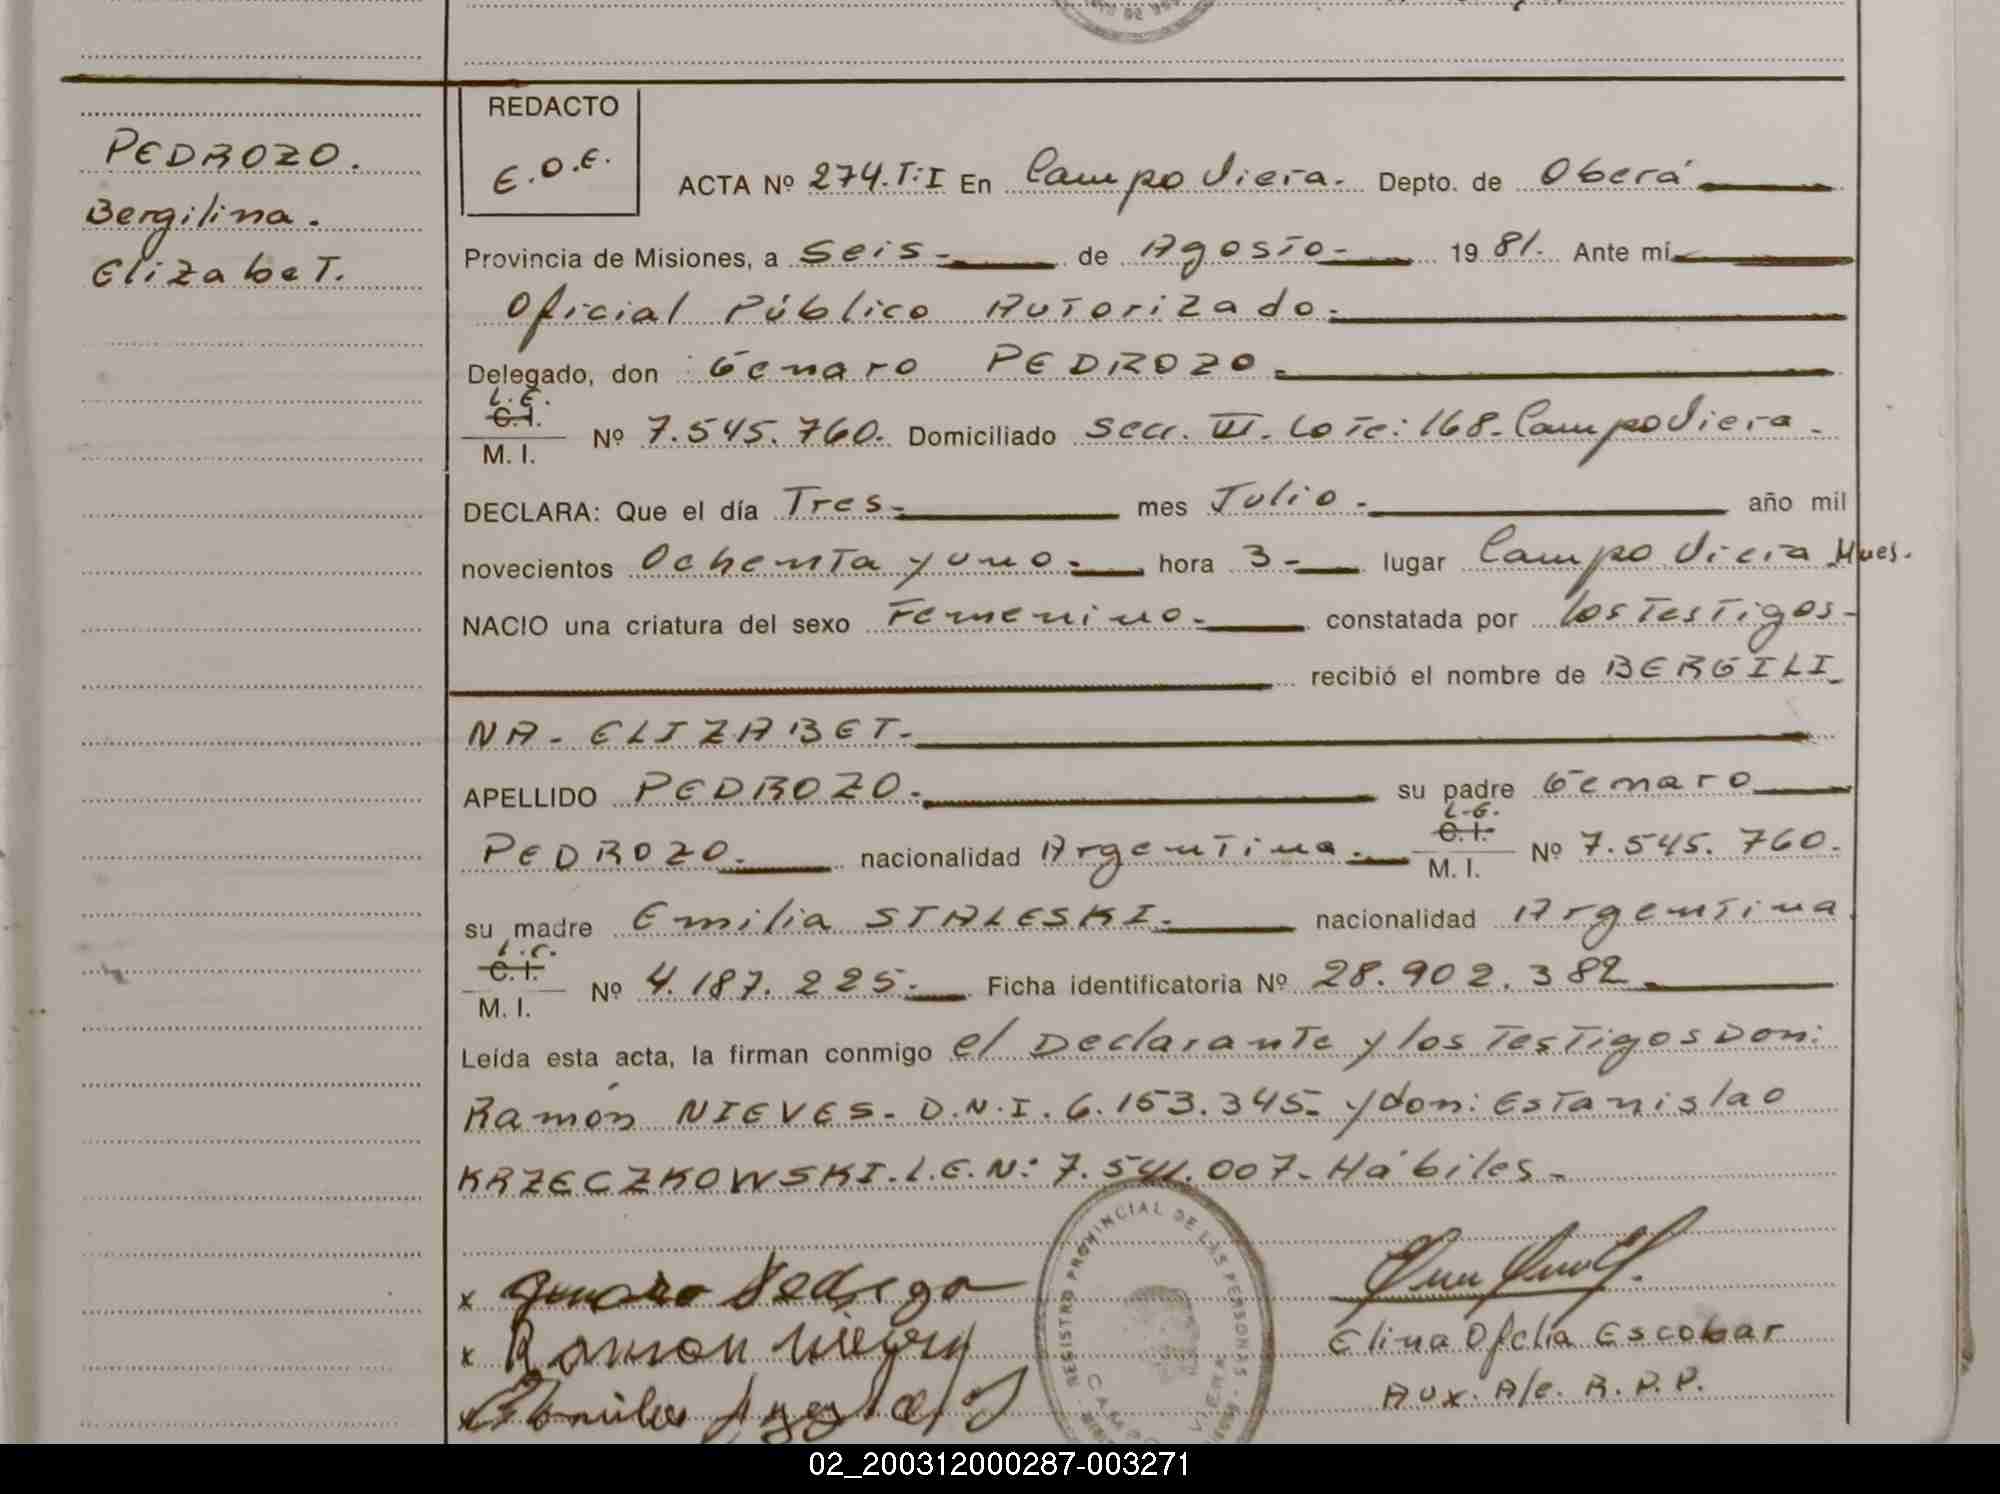 PEDROZO.
Bergilina.
Elizabet.
REDACTO
E.O.E.
ACTA Nº 274.T:I En Campo Viera. Depto. de Oberá
Provincia de Misiones, a Seis- de Agosto- 1981. Ante mí
Oficial Público Autorizado-
Delegado, don Genaro PEDROZO-
L.E.
C.I.
M. I. Nº 7.545.760. Domiciliado Secc. III. Lote: 168-Campo Viera-
DECLARA: Que el día Tres- mes Julio- año mil
novecientos Ochenta y uno- hora 3- lugar Campo Viera Mnes.
NACIO una criatura del sexo Femenino- constatada por los Testigos-
recibió el nombre de BERGILI
NA- ELIZABET-
APELLIDO PEDROZO- su padre Genaro
PEDROZO- nacionalidad Argentina-
L.E.
C.I.
M. I. Nº 7.545.760.
su madre Emilia STALESKI- nacionalidad Argentina
L.C.
C.I.
M. I. Nº 4.187.225- Ficha identificatoria Nº 28.902.382
Leída esta acta, la firman conmigo el Declarante y los Testigos Don:
Ramón NIEVES- D.N.I. 6.153.345- y don: Estanislao
KRZECZKOWSKI.L.E.N: 7.541.007- Hábiles-
x
x Ramon
REGISTRO PROVINCIAL DE LAS PERSONAS
CAMPO VIERA
Elina Ofelia Escobar
Aux. A/c. R.P.P.
02_200312000287-003271